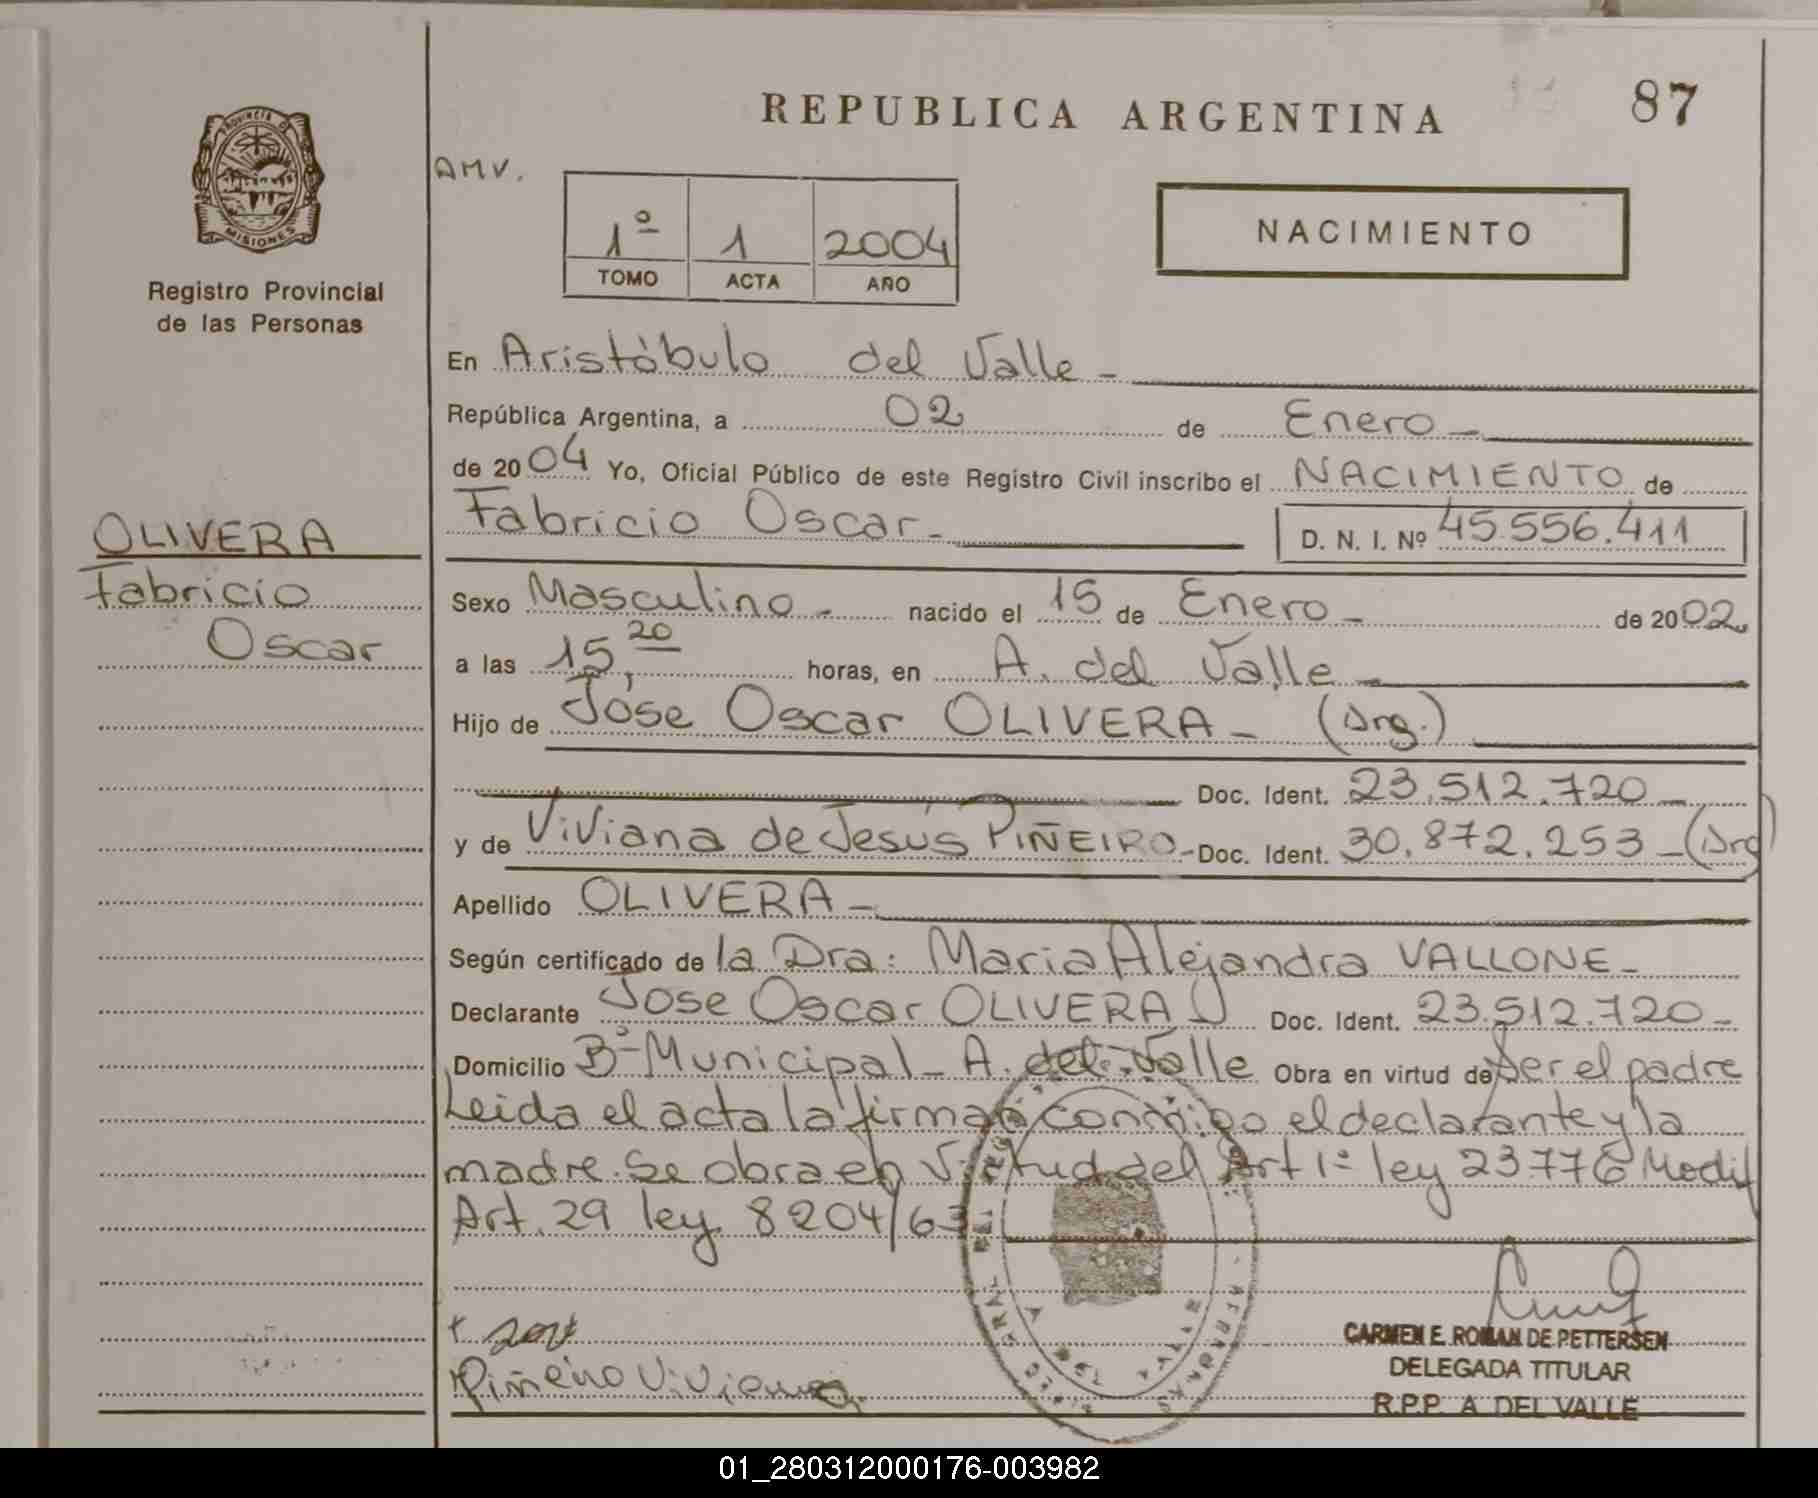 REPUBLICA ARGENTINA
87
PROVINCIA DE
MISIONES
Registro Provincial
de las Personas
AMV.
1º 1 2004
TOMO ACTA AÑO
NACIMIENTO
En Aristóbulo del Valle -
República Argentina, a 02 de Enero -
de 2004 Yo, Oficial Público de este Registro Civil inscribo el NACIMIENTO de
Fabricio Oscar - D. N. I. Nº 45.556.411
OLIVERA
Fabricio
Oscar
Sexo Masculino - nacido el 15 de Enero - de 2002
a las 15,20 horas, en A. del Valle -
Hijo de Jose Oscar OLIVERA - (Arg.)
Doc. Ident. 23.512.720 -
y de Viviana de Jesús PIÑEIRO - Doc. Ident. 30.872.253 - (Arg
Apellido OLIVERA -
Según certificado de la Dra: Maria Alejandra VALLONE -
Declarante Jose Oscar OLIVERA Doc. Ident. 23.512.720 -
Domicilio Bº Municipal - A. del Valle Obra en virtud de Ser el padre
Leida el acta la firman conmigo el declarante y la
madre. Se obra en Virtud del Art 1º ley 23776 Modif
Art. 29 ley 8204/63
Piñeiro Viviana
CARMEN E. ROMAN DE PETTERSEN
DELEGADA TITULAR
R.P.P. A. DEL VALLE
01_280312000176-003982